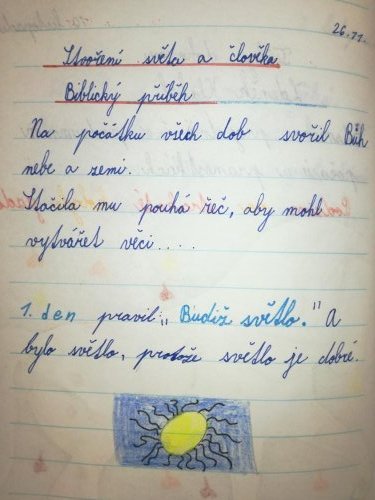 26.11.
Stvoření světa a člověka
Biblický příběh
Na počátku všech dob svořil Bůh
nebe a zemi...
Stačila mu pouhá řeč, aby mohl
vytvářet věci....
1. den pravil „Budiž světlo." A
bylo světlo, protože světlo je dobré.